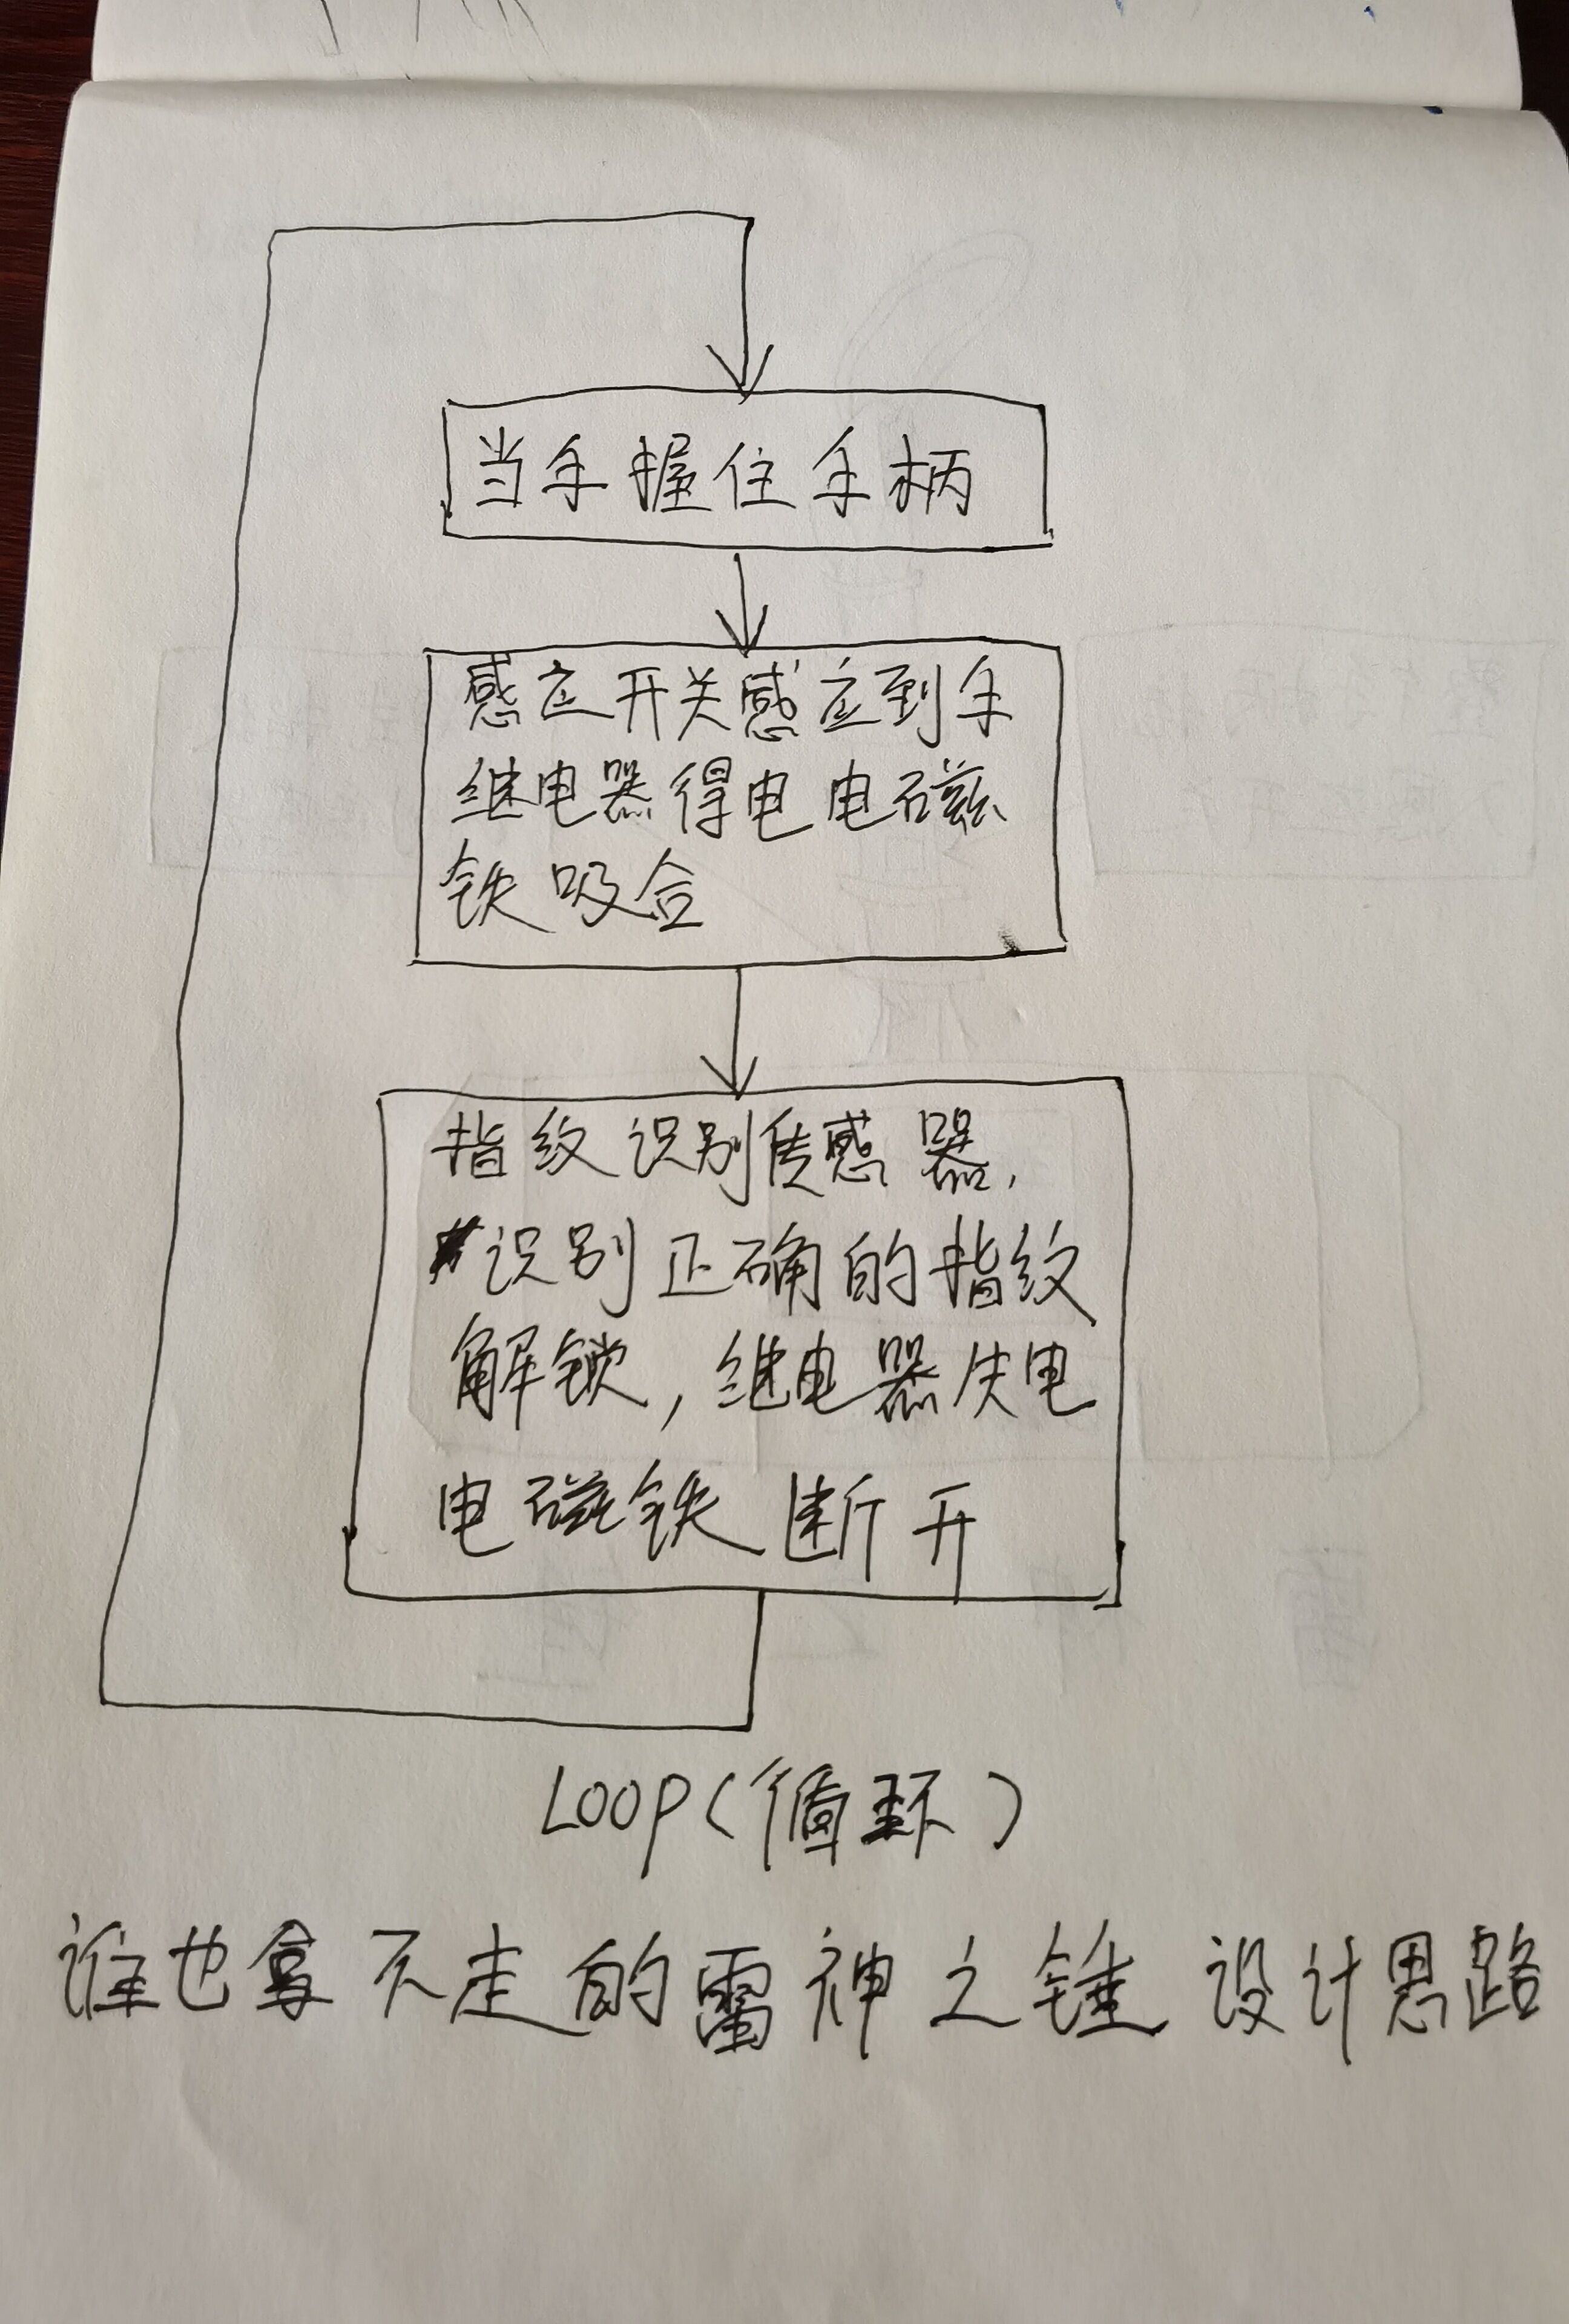 当手握住手柄
感应开关感应到手
继电器得电电磁
铁吸合
指纹识别传感器,
识别正确的指纹
解锁,继电器失电
电磁铁断开
LOOP(循环)
谁也拿不走的雷神之锤设计思路